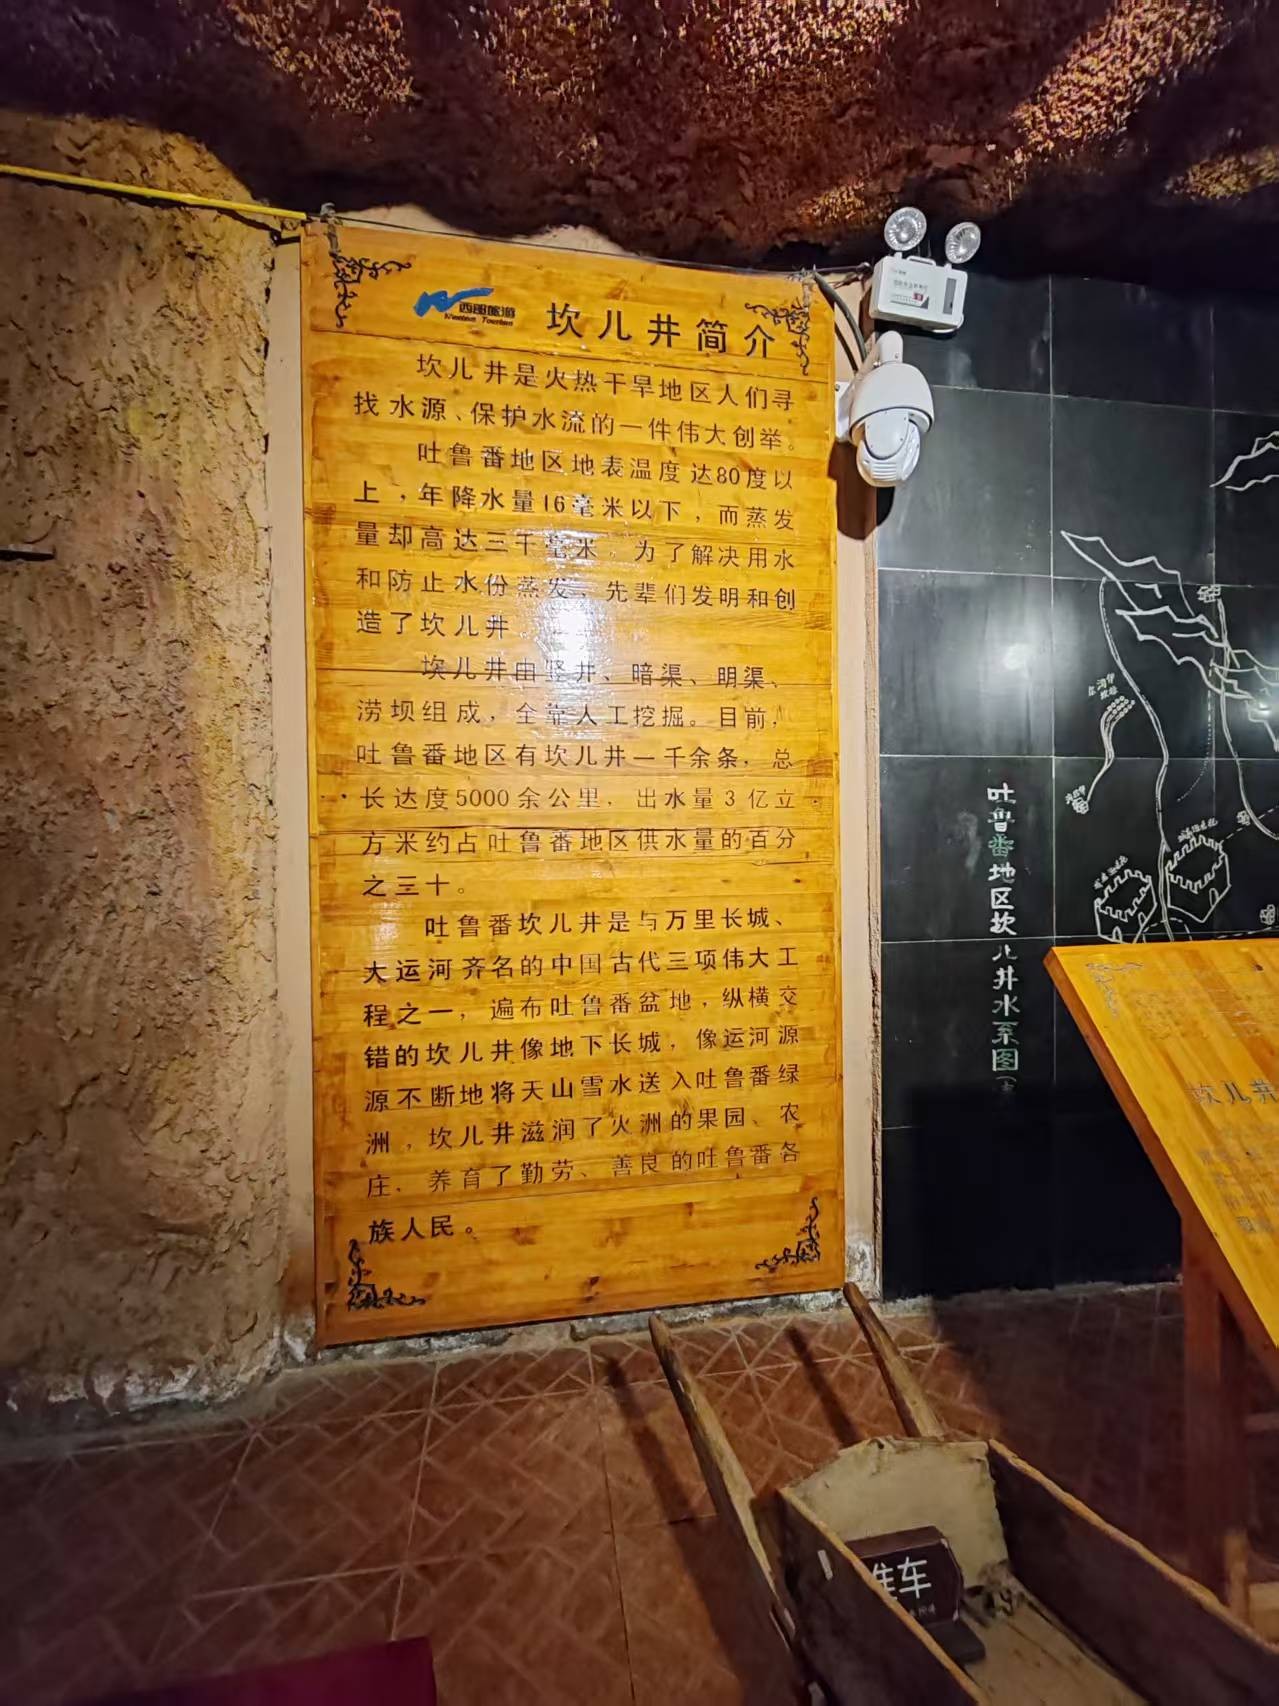 西部旅游
Western Tourism
坎儿井简介
坎儿井是火热干旱地区人们寻
找水源、保护水流的一件伟大创举。
吐鲁番地区地表温度达80度以
上，年降水量16毫米以下，而蒸发
量却高达三千毫米。为了解决用水
和防止水份蒸发，先辈们发明和创
造了坎儿井
坎儿井由竖井、暗渠、明渠、
涝坝组成，全靠人工挖掘。目前，
吐鲁番地区有坎儿井一千余条，总
长达度5000余公里，出水量3亿立
方米约占吐鲁番地区供水量的百分
之三十。
吐鲁番坎儿井是与万里长城、
大运河齐名的中国古代三项伟大工
程之一，遍布吐鲁番盆地，纵横交
错的坎儿井像地下长城，像运河源
源不断地将天山雪水送入吐鲁番绿
洲，坎儿井滋润了火洲的果园、农
庄，养育了勤劳、善良的吐鲁番各
族人民。
吐鲁番地区坎儿井水系图
坎儿井
推车